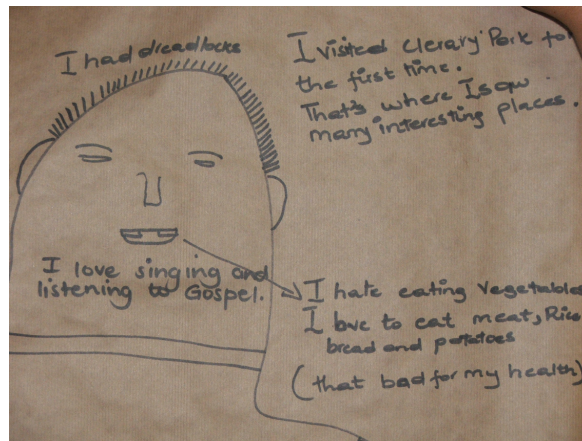 I had dreadlocks
I visited Clerary Park for
the first time.
That's where I saw
many interesting places.
I love singing and
listening to Gospel.
I hate eating vegetables
I love to eat meat, Rice
bread and potatoes
(that bad for my health)